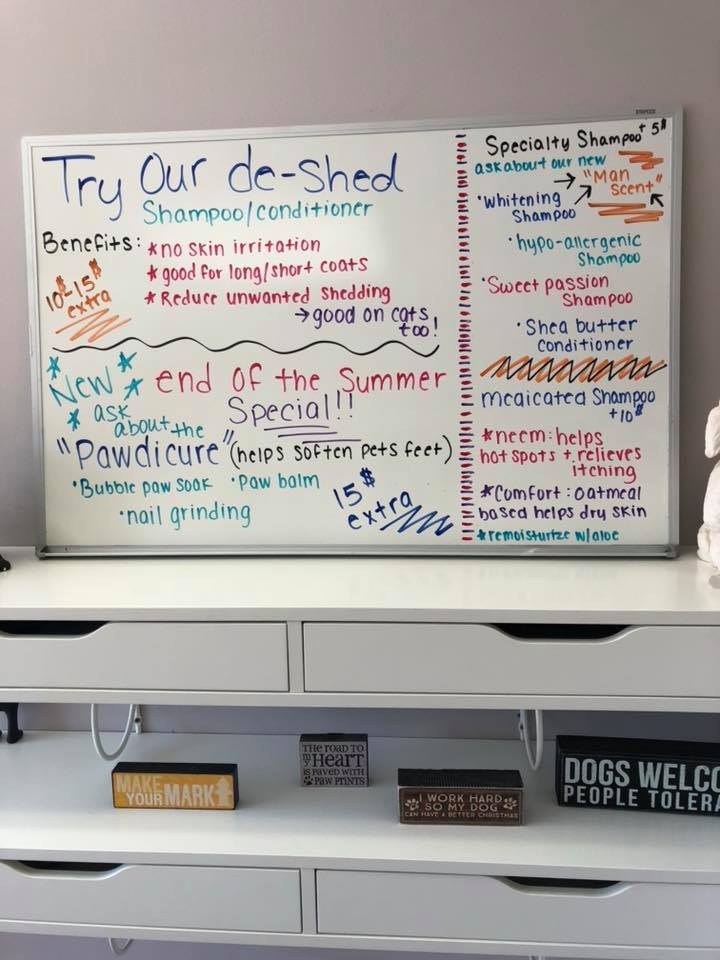 STAPLES
Try Our de-shed
Shampoo/conditioner
Benefits:
*no skin irritation
*good for long/short coats
*Reduce unwanted shedding
→good on cats
too!
10$-15$
extra
New
end OF the Summer
Special!!
* ask
about the
"Pawdicure" (helps soften pets feet)
•Bubble paw soak •Paw balm
•nail grinding
15$
extra
Specialty Shampoo + 5$
ask about our new
→ "Man
Scent"
•Whitening
Shampoo
•hypo-allergenic
Shampoo
•Sweet passion
Shampoo
•Shea butter
conditioner
medicated Shampoo
+10$
*neem: helps
hot spots + relieves
itching
*Comfort: oatmeal
based helps dry skin
*remoisturize w/aloe
MAKE
YOUR MARK
THE ROAD TO
my HEART
IS PAVED WITH
PAW PRINTS
I WORK HARD
SO MY DOG
CAN HAVE A BETTER CHRISTMAS
DOGS WELCO
PEOPLE TOLERA